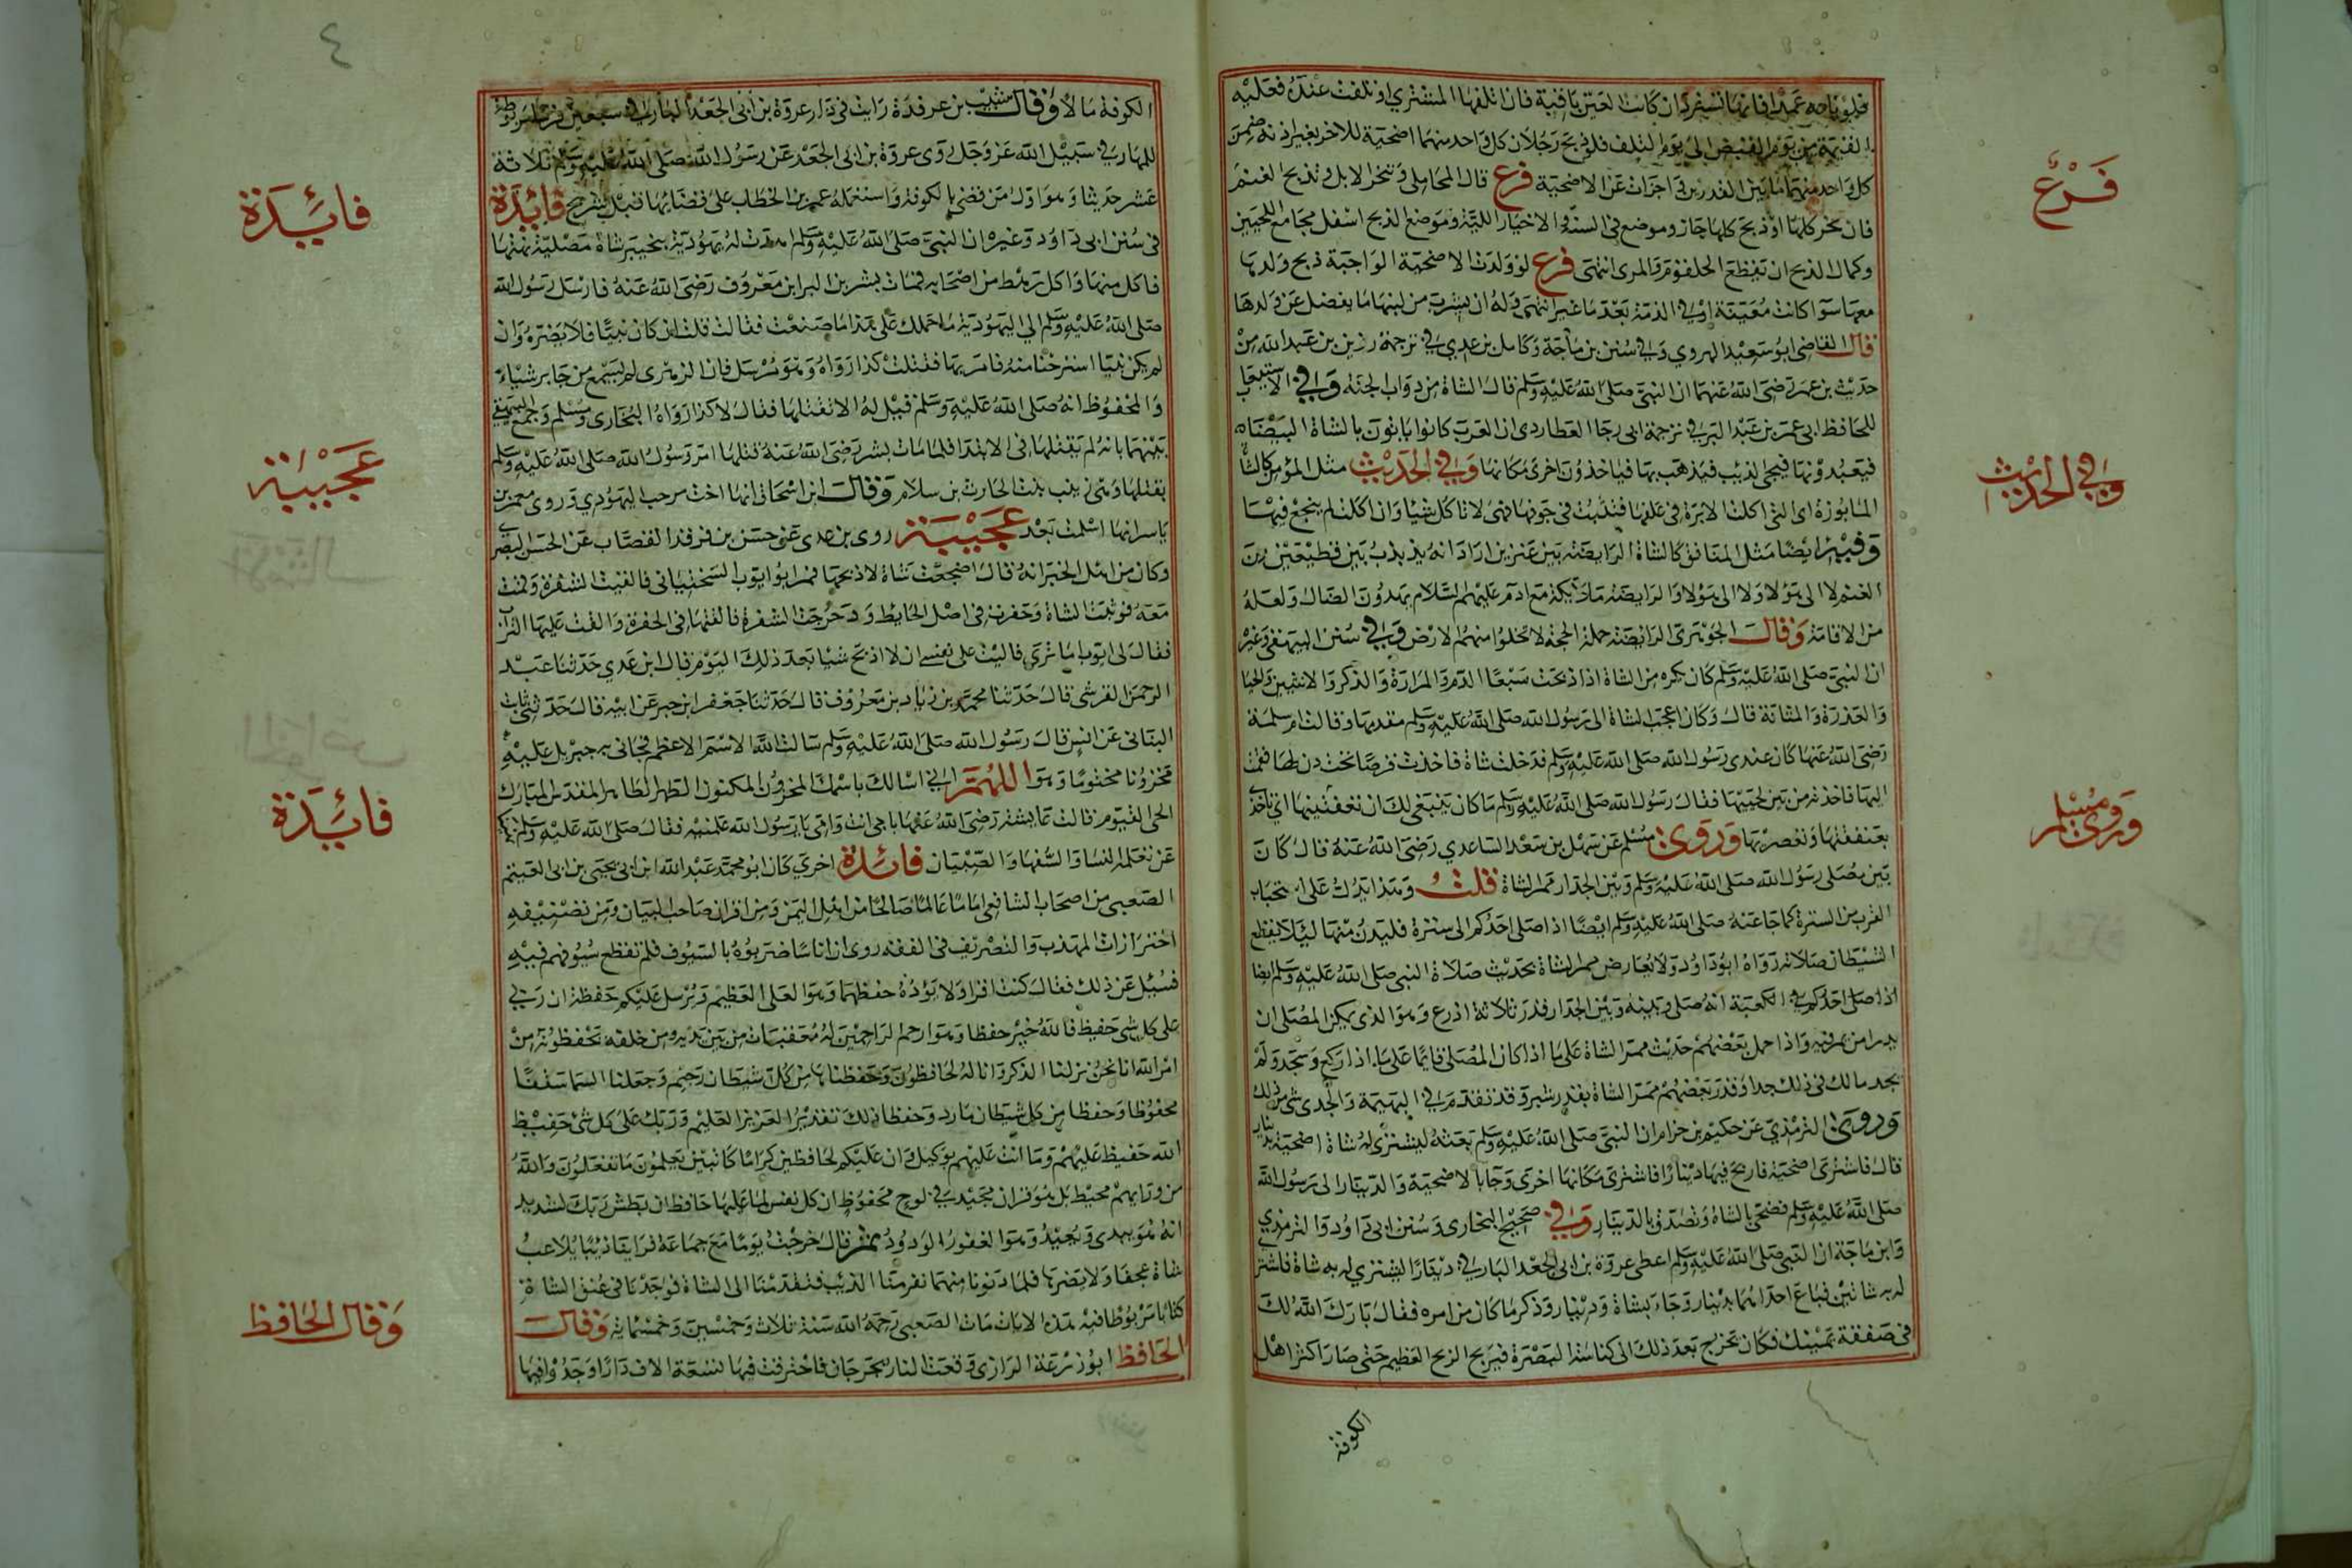 فلو باعه عمدا فانها تسترد ان كانت العين باقية فان اتلفها المشتري او تلفت عنده فعليه
القيمة من يوم القبض الى يوم التلف فلو ذبح رجلان كل واحد منهما اضحية للاخر بغير اذنه ضمن
كل واحد منهما ما بين القدرين اجزات عن الاضحية فرع قال المحاملي وتنحر الابل وتذبح الغنم
فان نحر كلها او ذبح كلها جاز وموضع في السنة والاختيار اللبة وموضع الذبح اسفل مجامع اللحيين
وكمال الذبح ان تقطع الحلقوم والمرى انتهى فرع لو ولدت الاضحية الواجبة ذبح ولدها
معها سوا كانت معينة او في الذمة بعد ما غير انتهى وله ان يشرب من لبنها ما يفضل عن ولدها
قال القاضى ابو سعيد الهروي وفي سنن بن ماجة وكامل بن عدي في ترجمة رزين بن عبد الله من
حديث بن عمر رضى الله عنهما ان النبى صلى الله عليه وسلم قال الشاة من دواب الجنة وفي الاستيعاب
للحافظ ابى عمر بن عبد البر في ترجمة ابى رجا العطاردى ان العرب كانوا ياتون بالشاة البيضاء
فيعبدونها فيجى الذيب فيذهب بها فياخذون اخرى مكانها وفي الحديث مثل المؤمن كالشاة
المابوزة اى التى اكلت الابرة في علفها فنشبت في جوفها فهى لا تاكل شيئا وان اكلت لم ينجع فيها
وفيه ايضا مثل المنافق كالشاة الرابضة بين غنمين اراد انه يذبذب بين قطيعين من
الغنم لا الى هؤلاء ولا الى هؤلاء والرابضة ملائكة مع ادم عليهم السلام يهدون الضال ولعله
من الاقامة وقال الجوهرى الرابضة حملة الحجة لا تخلوا منهم الارض وفي سنن البيهقى وغيره
ان النبى صلى الله عليه وسلم كان يكره من الشاة اذا ذبحت سبعا الدم والمرارة والذكر والانثيين والحيا
والغدرة والمثانة قال وكان اعجب الشاة الى رسول الله صلى الله عليه وسلم مقدمها وقالت ام سلمة
رضى الله عنها كان عندى رسول الله صلى الله عليه وسلم فدخلت شاة فاخذت قرصا تحت دن لنا فقمت
اليها فاخذته من بين لحييها فقال رسول الله صلى الله عليه وسلم ما كان ينبغى لك ان تعنقيها اى تاخذى
بعنقها وتعصريها وروى مسلم عن سهل بن سعد الساعدي رضى الله عنه قال كان
بين مصلى رسول الله صلى الله عليه وسلم وبين الجدار ممر الشاة قلت وهذا يدل على استحباب
القرب من السترة كما جا عنه صلى الله عليه وسلم ايضا اذا صلى احدكم الى سترة فليدن منها ليلا يقطع
الشيطان صلاته رواه ابو داود ولا يعارض ممر الشاة بحديث صلاة النبى صلى الله عليه وسلم ايضا
اذا صلى احدكم في الكعبة انه صلى وبينه وبين الجدار قدر ثلاثة اذرع وهو الذى يمكن المصلى ان
يدرا من يمر فيه واذا حمل بعضهم حديث ممر الشاة على ما اذا كان المصلى قايما على ما اذا ركع وسجد ولم
يحد مالك في ذلك حدا وقدر بعضهم ممر الشاة بقدر شبر وقد تقدم في البهيمة والجدى شى من ذلك
وروى الترمذي عن حكيم بن حزام ان النبى صلى الله عليه وسلم بعثه ليشترى له شاة اضحية بدينار
قال فاشترى اضحية فاربح فيها دينارا فاشترى مكانها اخرى وجا بالاضحية والدينار الى رسول الله
صلى الله عليه وسلم فضحى بالشاة وتصدق بالدينار وفي صحيح البخارى وسنن ابى داود والترمذي
وابن ماجة ان النبى صلى الله عليه وسلم اعطى عروة بن ابى الجعد البارقي دينارا ليشتري له به شاة فاشترى
له به شاتين فباع احداهما بدينار وجاء بشاة ودينار وذكر ما كان من امره فقال بارك الله لك
في صفقة يمينك فكان يخرج بعد ذلك الى كناسة البصرة فيربح الربح العظيم حتى صار اكثر اهل
الكوفة
فرع
وفي الحديث
وروى مسلم
٤
الكوفة مالا وقال شبيب بن عرقدة رايت في دار عروة بن ابى الجعد البارقي سبعين فرسا مربوطة
للجهاد في سبيل الله عز وجل روى عروة بن ابى الجعد عن رسول الله صلى الله عليه وسلم ثلاثة
عشر حديثا وهو اول من قضى بالكوفة واستعمله عمر بن الخطاب على قضائها قبل شريح فايدة
في سنن ابى داود وغيره ان النبى صلى الله عليه وسلم اهدت له يهودية بخيبر شاة مصلية سمتها
فاكل منها واكل رهط من اصحابه فمات بشر بن البرا بن معروف رضى الله عنه فارسل رسول الله
صلى الله عليه وسلم الى اليهودية ما حملك على هذا ما صنعت فقالت قلت ان كان نبيا فلا يضره وان
لم يكن نبيا استرحنا منه فامر بها فقتلت كذا رواه وهو مرسل فان الزهرى لم يسمع من جابر شيا
والمحفوظ انه صلى الله عليه وسلم قيل له الا تقتلها فقال لا كذا رواه البخارى ومسلم وجمع البيهقى
بينهما بانه لم يقتلها في الابتدا فلما مات بشر رضى الله عنه قتلها امر رسول الله صلى الله عليه وسلم
بقتلها وهى زينب بنت الحارث بن سلام وقال ابن اسحاق انها اخت مرحب اليهودي وروى معمر بن
ياسر انها اسلمت بعد عجيبة روى بن عدى عن حسن بن فرقد القصاب عن الحسن البصرى
وكان من اهل الخير انه قال اضجعت شاة لاذبحها فمر ابو ايوب السختيانى فالقيت الشفرة وقمت
معه فوثبت الشاة وحفرت في اصل الحايط ودحرجت الشفرة فالقتها في الحفرة والقت عليها التراب
فقال لى ايوب اما ترى فاليت على نفسى ان لا اذبح شيا بعد ذلك اليوم قال ابن عدي حدثنا عبد
الرحمن القرشى قال حدثنا محمد بن زياد بن معروف قال حدثنا جعفر ابن جبر عن ابيه قال حدثنى ثابت
البنانى عن انس قال رسول الله صلى الله عليه وسلم سالت الله الاسم الاعظم فجانى به جبريل عليه
مخزونا مختوما وهو اللهم انى اسالك باسمك المخزون المكنون الطهر الطاهر المقدس المبارك
الحى القيوم قالت عايشة رضى الله عنها بابى انت وامى يا رسول الله علمنيه فقال صلى الله عليه وسلم نهينا
عن تعلمه النسا والسفها والصبيان فائدة اخرى كان ابو محمد عبد الله ابن ابى يحيى بن ابى القيتم
الصعبى من اصحاب الشافعى اماما عالما صالحا من اهل اليمن ومن اقران صاحب البيان ومن تصنيفه
احترازات المهذب والتصريف في الفقه روى ان اناسا ضربوه بالسيوف فلم تقطع سيوفهم فيه
فسيل عن ذلك فقال كنت اقرا ولا يؤده حفظهما وهو العلى العظيم ويرسل عليكم حفظة ان ربي
على كل شى حفيظ فالله خير حفظا وهو ارحم الراحمين له معقبات من بين يديه ومن خلفه يحفظونه من
امر الله انا نحن نزلنا الذكر وانا له لحافظون وحفظناها من كل شيطان رجيم وجعلنا السما سقفا
محفوظا وحفظا من كل شيطان مارد وحفظا ذلك تقدير العزيز العليم وربك على كل شى حفيظ
الله حفيظ عليهم وما انت عليهم بوكيل وان عليكم لحافظين كراما كاتبين يعلمون ما تفعلون والله
من ورايهم محيط بل هو قران مجيد في لوح محفوظ ان كل نفس لما عليها حافظ ان بطش ربك لشديد
انه هو يبدى ويعيد وهو الغفور الودود ثم قال خرجت يوما مع جماعة فراينا ذيبا يلاعب
شاة عجفا ولا يضرها فلما دنونا منهما نفر منا الذيب فتقدمنا الى الشاة فوجدنا في عنق الشاة
كتابا مربوطا فيه هذه الايات مات الصعبى رحمه الله سنة ثلاث وخمسين وخمسماية وقال
الحافظ ابو زرعة الرازى وقعت النار بجرجان فاحترقت فيها تسعة الاف دارا وجدوا فيها
فايدة
عجيبة
فايدة
وقال الحافظ